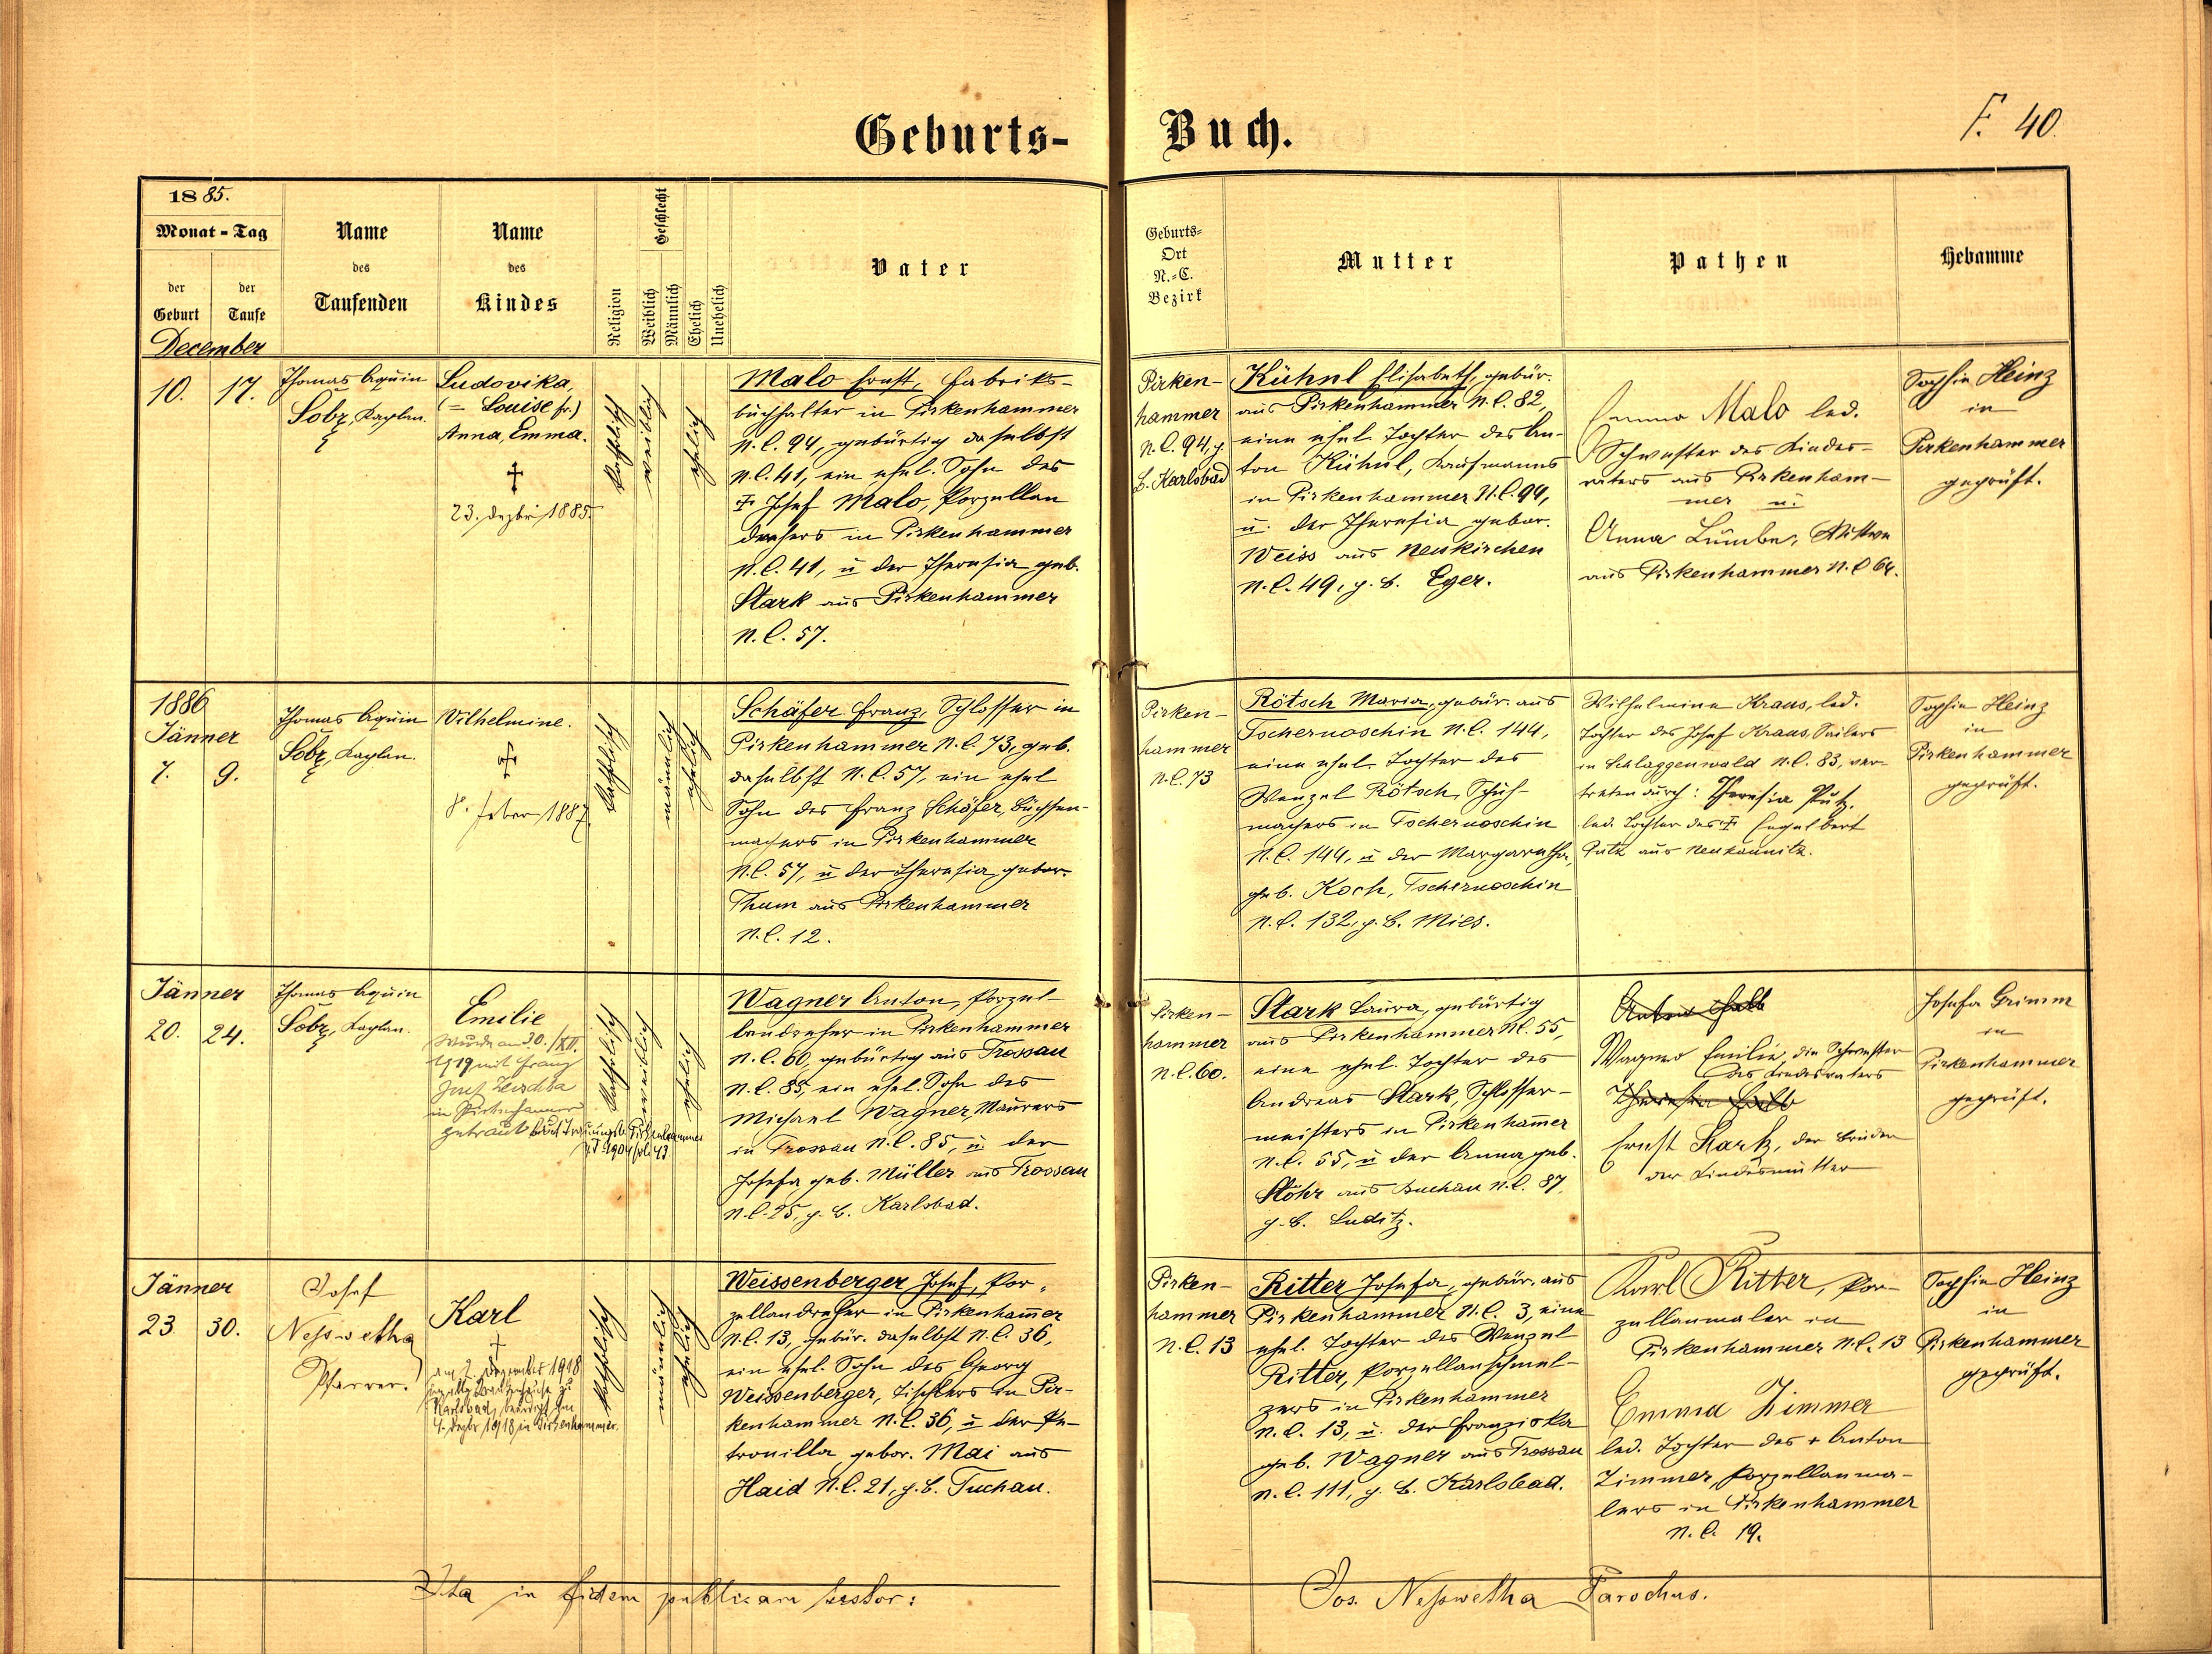 Geburts-
Buch.
F. 40.
1885.
Monat - Tag
der Geburt
der Taufe
Name des Taufenden
Name des Kindes
Religion
Geschlecht
Weiblich
Männlich
Ehelich
Unehelich
Vater
Geburts-
Ort
N.-C.
Bezirk
Mutter
Pathen
Hebamme
December
10.
17.
Thomas Aquin
Lobz, Kaplan.
Ludovika,
(= Louise fr.)
Anna, Emma.
†
23. Dezbr 1885.
katholisch
weiblich
ehelich
Malo Ernst, Fabriks-
buchhalter in Pirkenhammer
N.C. 94, gebürtig daselbst
N.C. 41, ein ehel. Sohn des
† Josef Malo, Porzellan
drehers in Pirkenhammer
N.C. 41, u der Theresia geb.
Stark aus Pirkenhammer
N.C. 57.
Pirken-
hammer
N.C. 94, g.
B. Karlsbad
Kühnl Elisabeth, gebür.
aus Pirkenhammer N.C. 82,
eine ehel. Tochter des An-
ton Kühnl, Kaufmanns
in Pirkenhammer N.C. 94,
u. der Theresia gebor.
Weiss aus Neukirchen
N.C. 49, g. B. Eger.
Emma Malo led.
Schwester des Kindes-
vaters aus Pirkenham-
mer u.
Anna Lumbe, Wittwe
aus Pirkenhammer N.C 64.
Sophie Heinz
in
Pirkenhammer
geprüft.
1886
Jänner
7.
9.
Thomas Aquin
Lobz, Kaplan.
Wilhelmine.
†
8. Feber 1887.
katholisch
männlich
ehelich
Schäfer Franz, Schlosser in
Pirkenhammer N.C. 73, geb.
daselbst N.C. 57, ein ehel
Sohn des Franz Schäfer, Büchsen-
machers in Pirkenhammer
N.C. 57, u der Theresia gebor.
Thum aus Pirkenhammer
N.C. 12.
Pirken-
hammer
N.C. 73
Rötsch Maria, gebür. aus
Tschernoschin N.C. 144,
eine ehel. Tochter des
Wenzel Rötsch, Schuh-
machers in Tschernoschin
N.C. 144, u der Margaretha
geb. Koch, Tschernoschin
N.C. 132, g. B. Mies.
Wilhelmine Kraus, led.
Tochter des Josef Kraus, Seilers
in Schlaggenwald N.C. 83, ver-
treten durch: Theresia Putz,
led. Tochter des † Engelbert
Putz aus Neukaunitz.
Sophie Heinz
in
Pirkenhammer
geprüft.
Jänner
20.
24.
Thomas Aquin
Lobz, Kaplan.
Emilie
Wurde am 30./XII.
1919 mit Franz
Josef
in Pirkenhammer
getraut laut Trauungsb. Pirkenhammer
fol. 43
katholisch
weiblich
ehelich
Wagner Anton, Porzel-
landreher in Pirkenhammer
N.C. 60, gebürtig aus Trossau
N.C. 85, ein ehel. Sohn des
Michael Wagner, Maurers
in Trossau N.C. 85, u der
Josefa geb. Müller aus Trossau
N.C. 25, g. B. Karlsbad.
Pirken-
hammer
N.C. 60.
Stark Laura, gebürtig
aus Pirkenhammer N.C. 55,
eine ehel. Tochter des
Andreas Stark, Schlosser-
meisters in Pirkenham̄er
N.C. 55, u der Anna geb.
Stöhr aus Buchau N.C. 87,
g. B. Luditz.
Wagner Emilie, die Schwester
des Kindesvaters
Ernst Stark, der Bruder
der Kindesmutter
Josefa Grimm
in
Pirkenhammer
geprüft.
Jänner
23
30.
Josef
Nesswetha
Pfarrer.
Karl
†
am 2. Dezember 1918
im allg. Krankenhause zu
Karlsbad, beerdigt am
4. Dezbr 1918 in Pirkenhammer.
katholisch
männlich
ehelich
Weissenberger Josef, Por-
zellandreher in Pirkenham̄er
N.C. 13, gebür. daselbst N.C. 36,
ein ehel. Sohn des Georg
Weissenberger, Tischlers in Pir-
kenhammer N.C. 36, u der Pe-
tronilla gebor. Mai aus
Haid N.C. 21, g. B. Tuchau.
Pirken-
hammer
N.C. 13
Ritter Josefa, gebür. aus
Pirkenhammer N.C. 3, eine
ehel. Tochter des Wenzel
Ritter, Porzellanschmel-
zers in Pirkenhammer
N.C. 13, u. der Franziska
geb. Wagner aus Trossau
N.C. 111, g. B. Karlsbad.
Karl Ritter, Por-
zellanmaler in
Pirkenhammer N.C. 13
Emma Zimmer
led. Tochter des + Anton
Zimmer, Porzellanma-
lers in Pirkenhammer
N.C. 19.
Sophie Heinz
in
Pirkenhammer
geprüft.
Ita in fidem publicam testor:
Jos. Nesswetha Parochus.